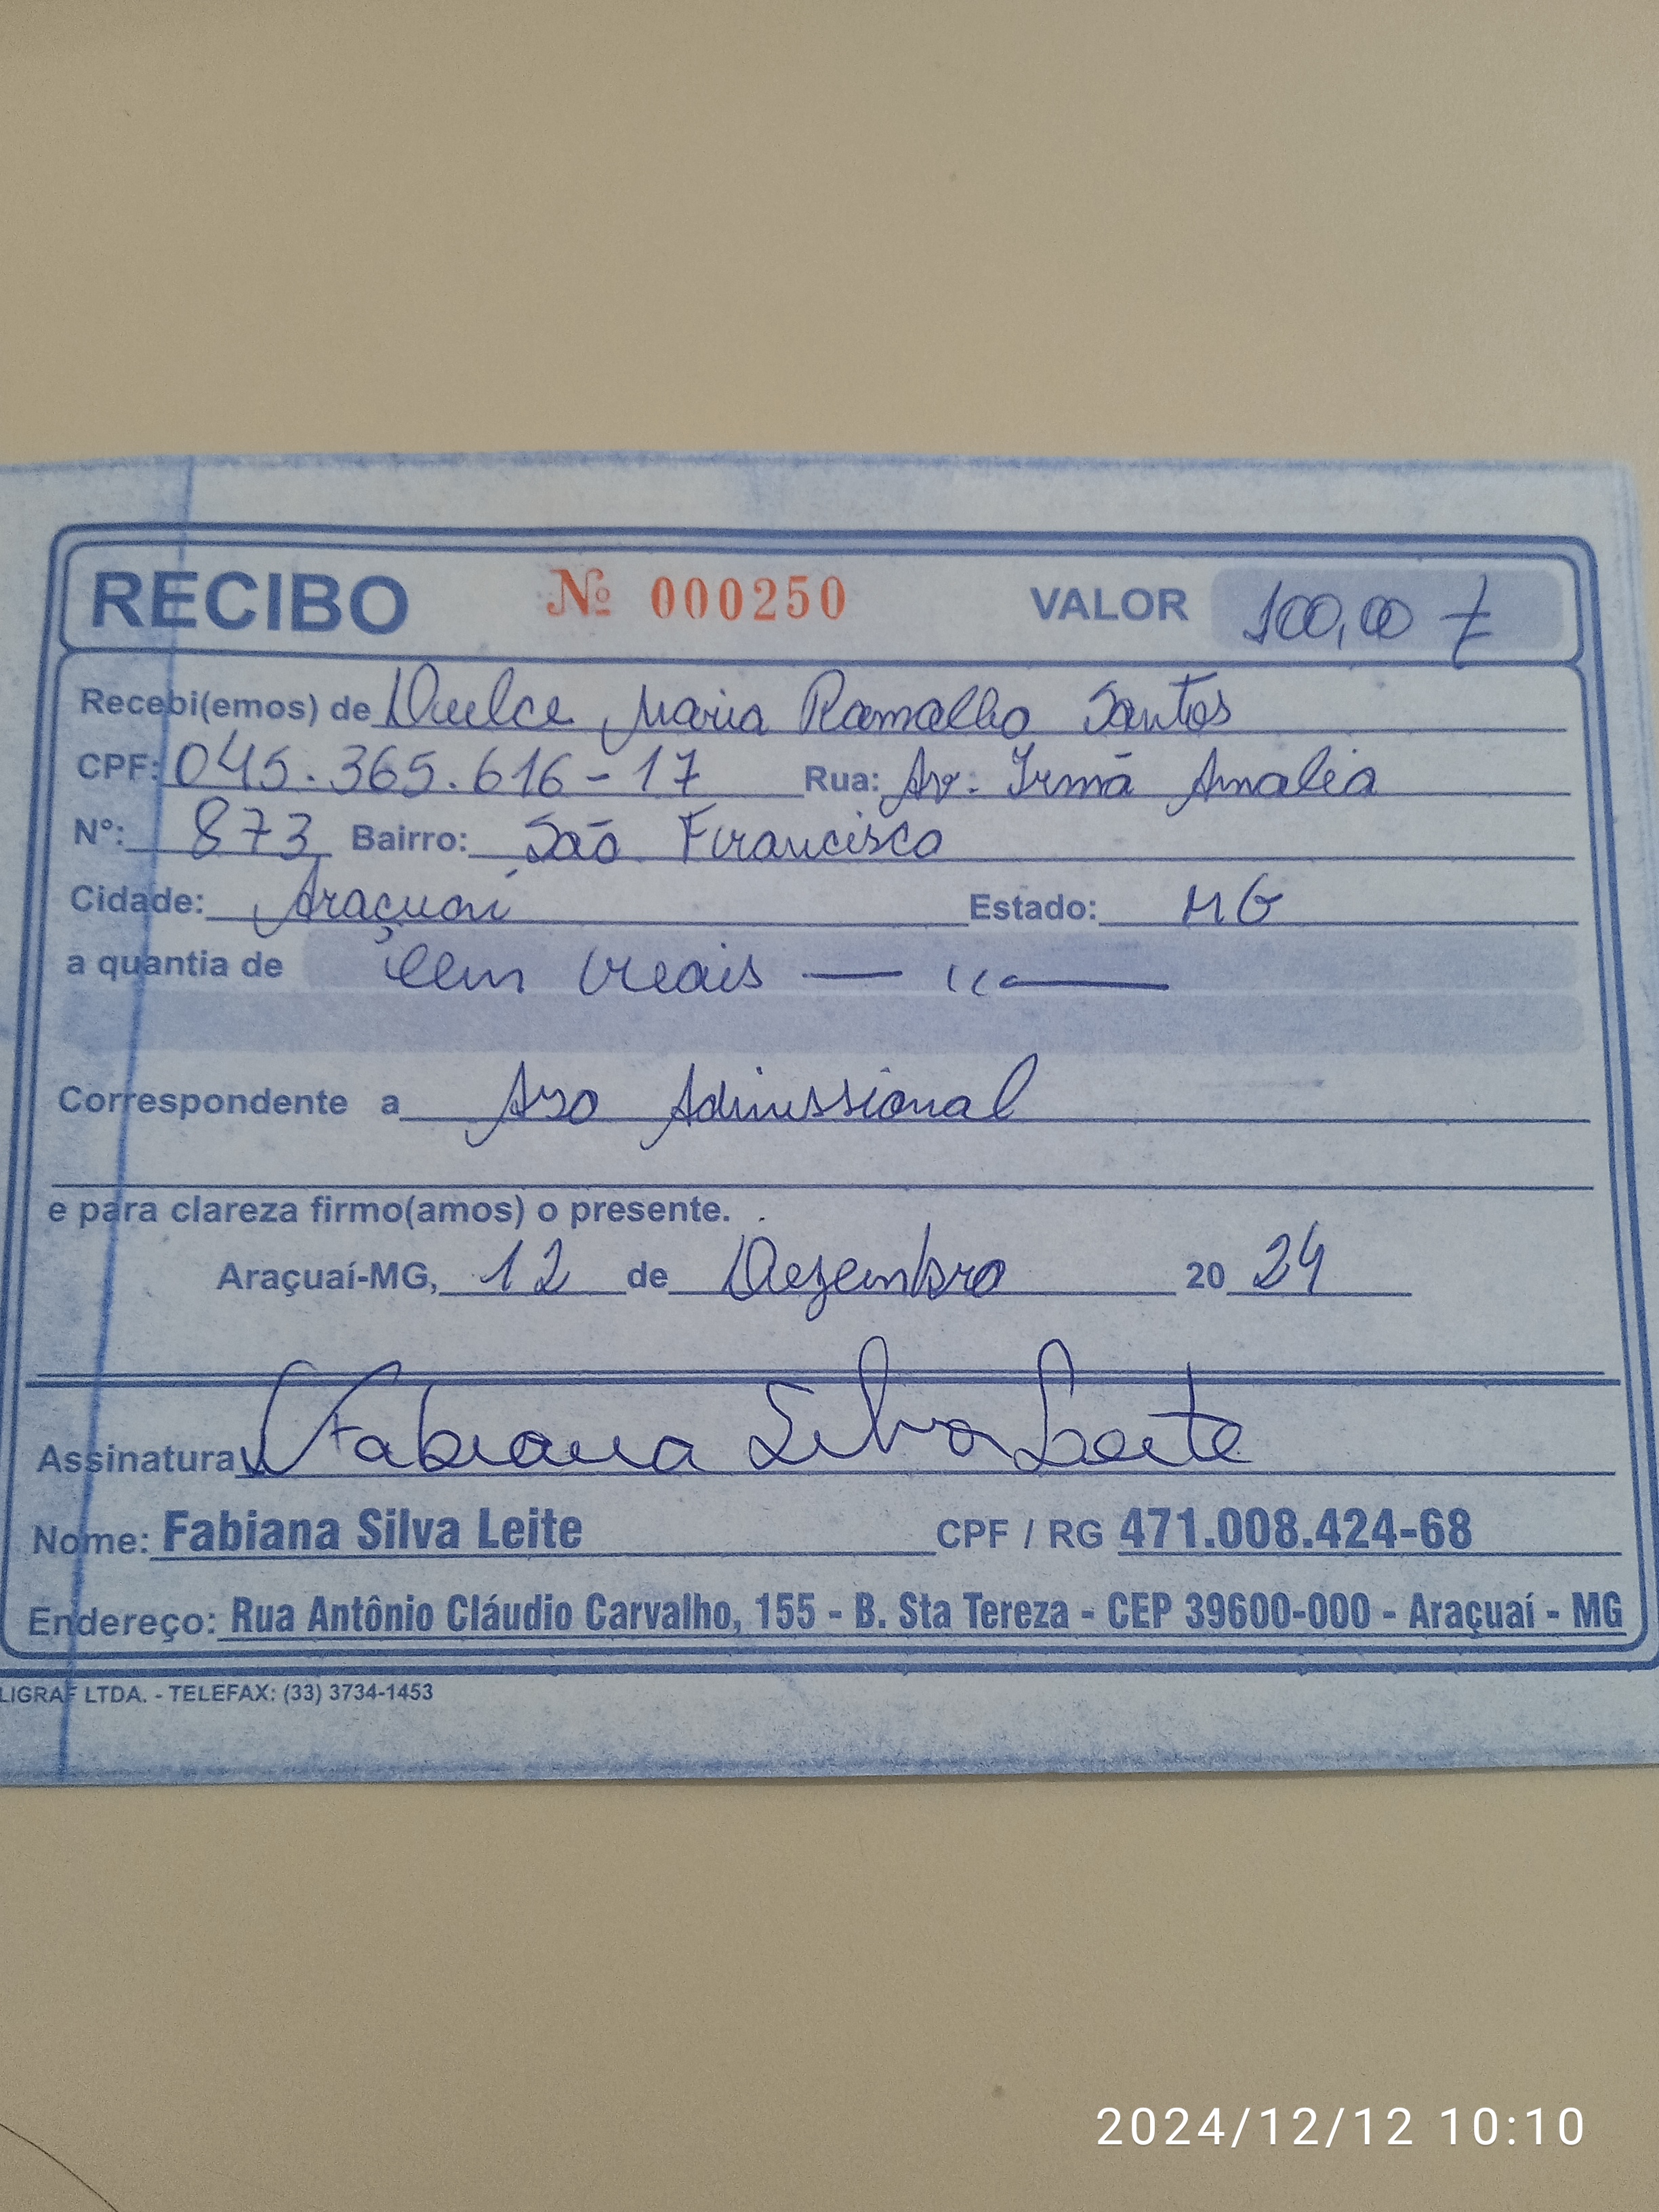 RECIBO Nº 000250 VALOR 100,00
Recebi(emos) de Dulce Maria Ramalho Santos
CPF: 045.365.616-17 Rua: Av. Irmã Amalia
Nº: 873 Bairro: São Francisco
Cidade: Araçuaí Estado: MG
a quantia de Cem reais — ıı —
Correspondente a Aso Admissional
e para clareza firmo(amos) o presente.
Araçuaí-MG, 12 de Dezembro 20 24
Assinatura Fabiana Silva Leite
Nome: Fabiana Silva Leite CPF / RG 471.008.424-68
Endereço: Rua Antônio Cláudio Carvalho, 155 - B. Sta Tereza - CEP 39600-000 - Araçuaí - MG
LIGRAF LTDA. - TELEFAX: (33) 3734-1453
2024/12/12 10:10